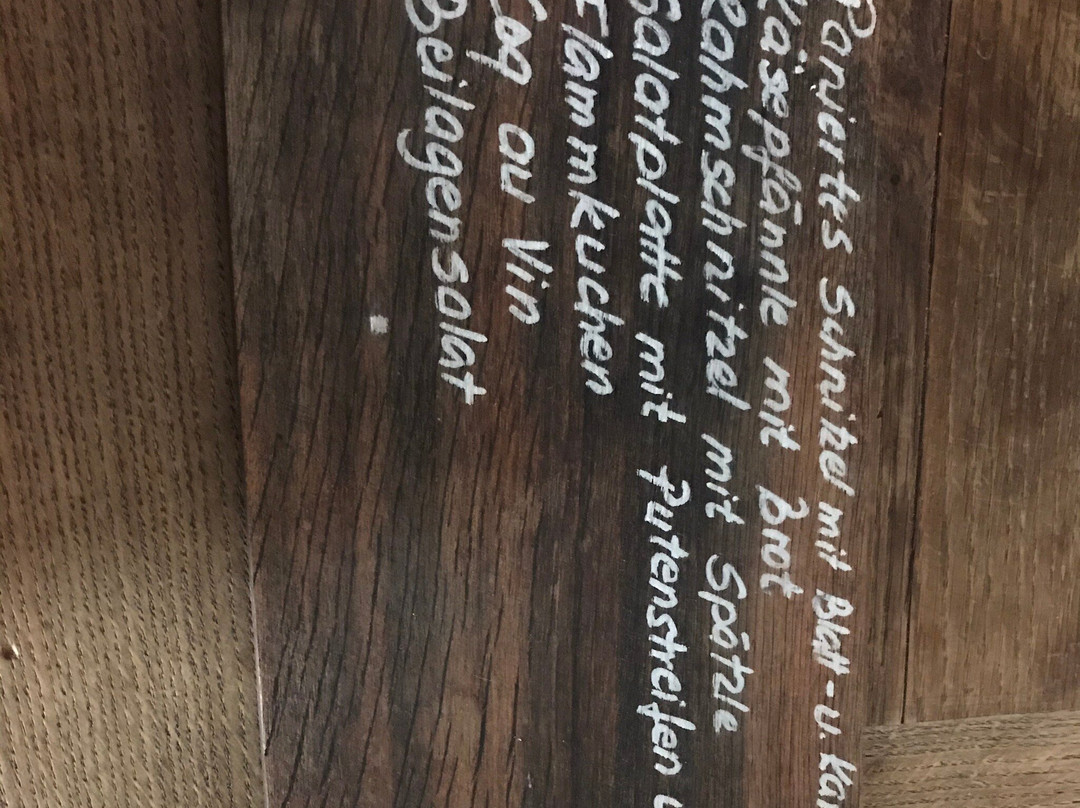 Paniertes Schnitzel mit Blatt-u. Kar
Käsepfännle mit Brot
Rahmschnitzel mit Spätzle
Salatplatte mit Putenstreifen u
Flammkuchen
Coq au Vin
Beilagensalat